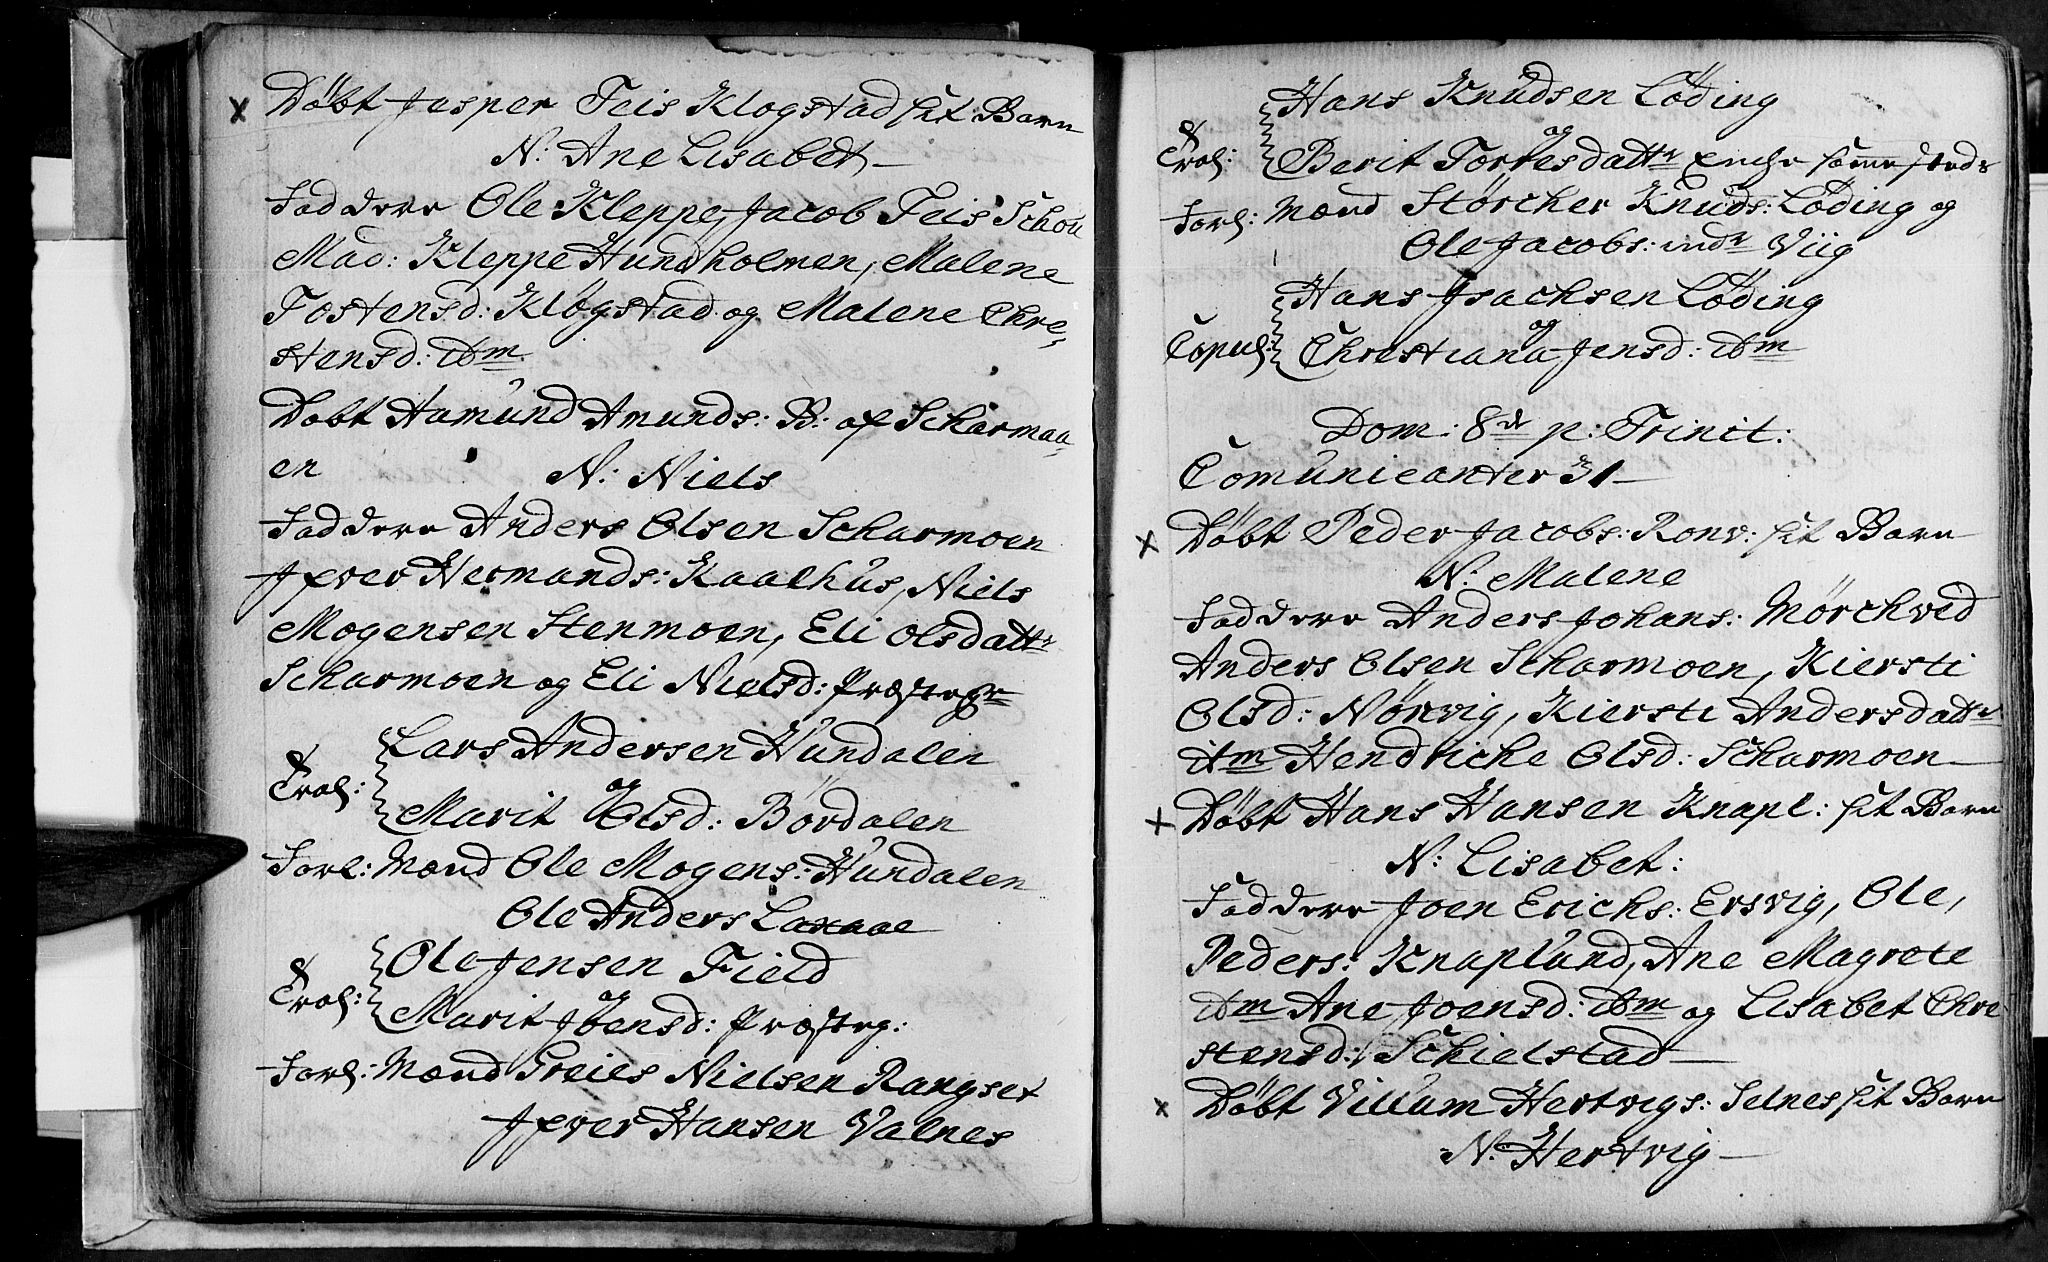 x Döbt Jesper Teis Klogstad sit Barn
N: Ane Lisabet
Faddere Ole Kleppe, Jacob Teis Schou
Mad: Kleppe Hundholmen, Malene
Tostensd: Klogstad og Malene Chre,
stensd: ibm
Döbt Hamund Amunds: B: af Scharmoa
en N: Niels
Faddere Anders Olsen Scharmoen
Jfver Hermands: Kaalhus, Niels
Mogensen Stenmoen, Eli Olsdattr
Scharmoen og Eli Nielsd: Præstegr
Lars Andersen Hundalen
Trol: og
Marit Olsd: Bördalen
Forl: Mænd Ole Mogens: Hundalen
Ole Anders Laxaae
Ole Jensen Field
Trol: og
Marit Joensd: Præsteg:
Forl: Mænd Greies Nielsen Rangset
Jfver Hansen Valnes
Hans Knudsen Löding
Trol: og
Berit Torresdattr Enche samesteds
Forl: Mænd Störcher Knuds: Löding og
Ole Jacobs: indr Viig
Hans Jsachsen Löding
Copul: og
Chrestiana Jensd: ibm
Dom: 8de p: Trinit:
Comunicanter 31
x Döbt Peder Jacobs: Ronv: sit Barn
N: Malene
Faddere Anders Johans: Mörchved
Anders Olsen Scharmoen, Kiersti
Olsd: Nörvig, Kiersti Andersdattr
ibm Hendriche Olsd: Scharmoen
x Döbt Hans Hansen Knapl: sit Barn
N: Lisabet:
Faddere Joen Erichs: Ersvig, Ole,
Peders: Knaplund, Ane Magrete
ibm Ane Joensd: ibm og Lisabet Chre
stensd: Schielstad
x Döbt Villum Hertvigs: Selnes sit Barn
N: Hertvig